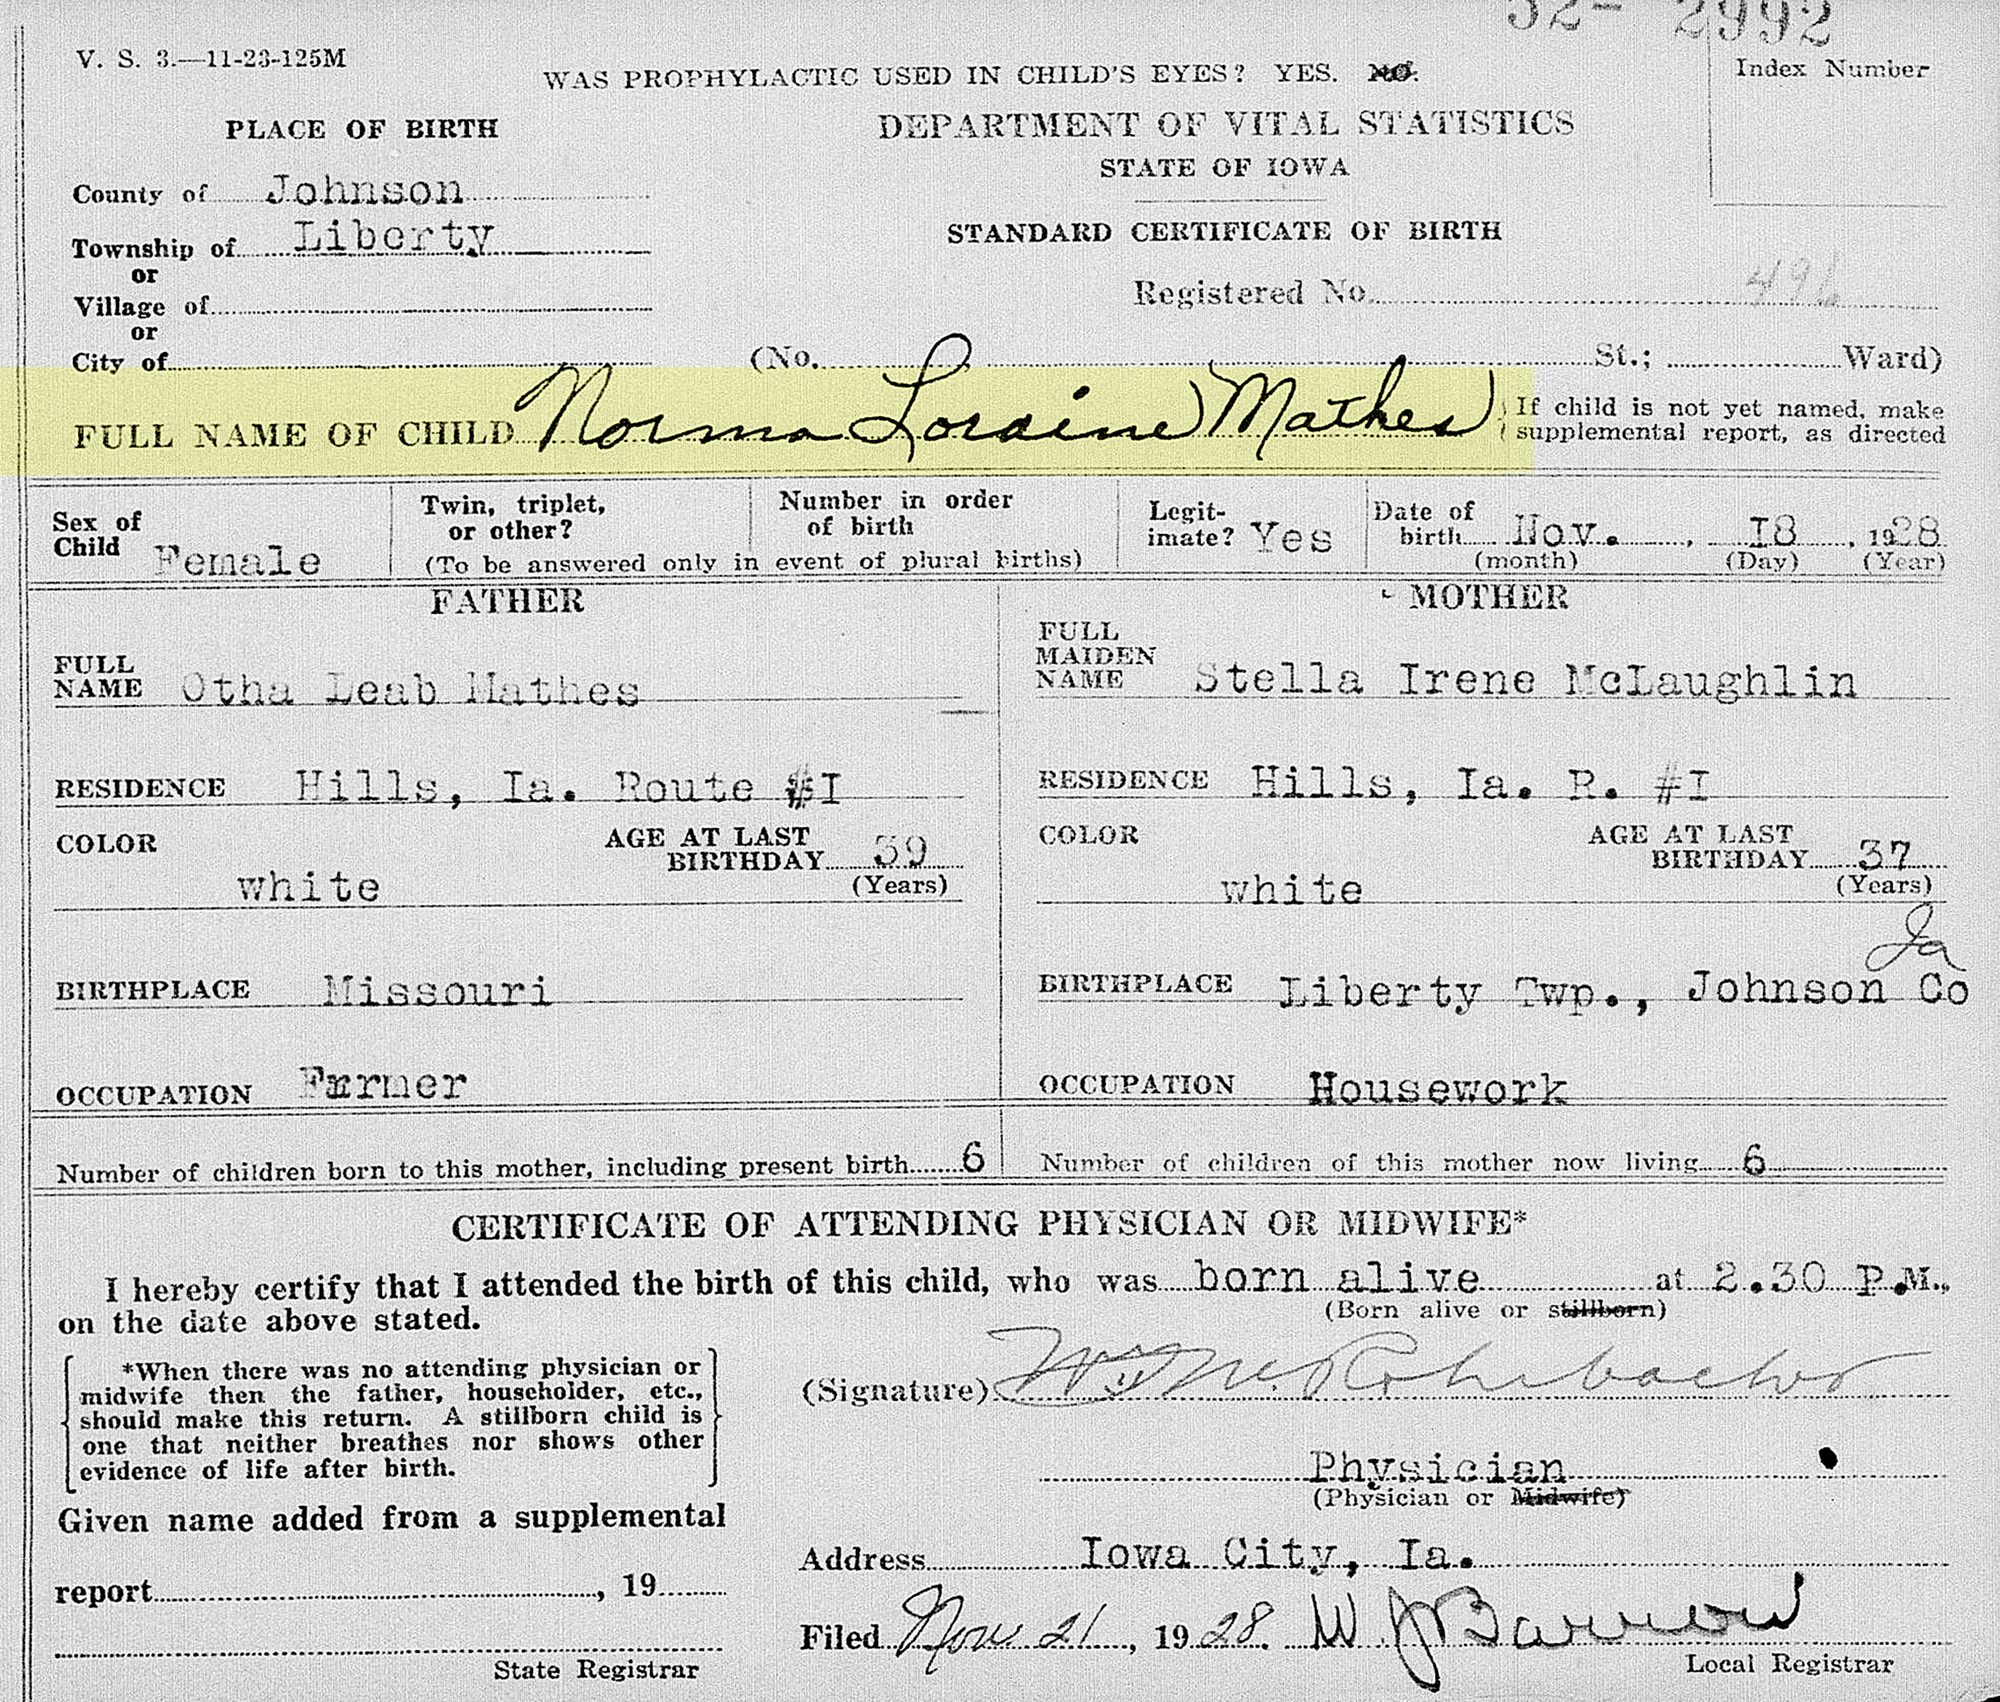 52- 2992
V. S. 3.—11-23-125M
WAS PROPHYLACTIC USED IN CHILD'S EYES? YES. NO.
Index Number
PLACE OF BIRTH
DEPARTMENT OF VITAL STATISTICS
STATE OF IOWA
County of Johnson
STANDARD CERTIFICATE OF BIRTH
Township of Liberty
or
Registered No. 496
Village of
or
City of
(No. St.; Ward)
FULL NAME OF CHILD Norma Loraine Mathes
If child is not yet named, make
supplemental report, as directed
Sex of
Child Female
Twin, triplet,
or other?
Number in order
of birth
(To be answered only in event of plural births)
Legit-
imate? Yes
Date of
birth Nov. , 18 , 1928
(month) (Day) (Year)
FATHER
FULL
NAME Otha Leab Mathes
RESIDENCE Hills, Ia. Route #1
COLOR white
AGE AT LAST
BIRTHDAY 39
(Years)
BIRTHPLACE Missouri
OCCUPATION Farmer
MOTHER
FULL
MAIDEN
NAME Stella Irene McLaughlin
RESIDENCE Hills, Ia. R. #1
COLOR white
AGE AT LAST
BIRTHDAY 37
(Years)
BIRTHPLACE Liberty Twp., Johnson Co Ia
OCCUPATION Housework
Number of children born to this mother, including present birth 6
Number of children of this mother now living 6
CERTIFICATE OF ATTENDING PHYSICIAN OR MIDWIFE*
I hereby certify that I attended the birth of this child, who was born alive at 2.30 P.M.,
(Born alive or stillborn)
on the date above stated.
*When there was no attending physician or
midwife then the father, householder, etc.,
should make this return. A stillborn child is
one that neither breathes nor shows other
evidence of life after birth.
(Signature) Rohrbacher
Physician
(Physician or Midwife)
Given name added from a supplemental
report , 19
State Registrar
Address Iowa City, Ia.
Filed Nov 21 , 1928. W J Barrow
Local Registrar